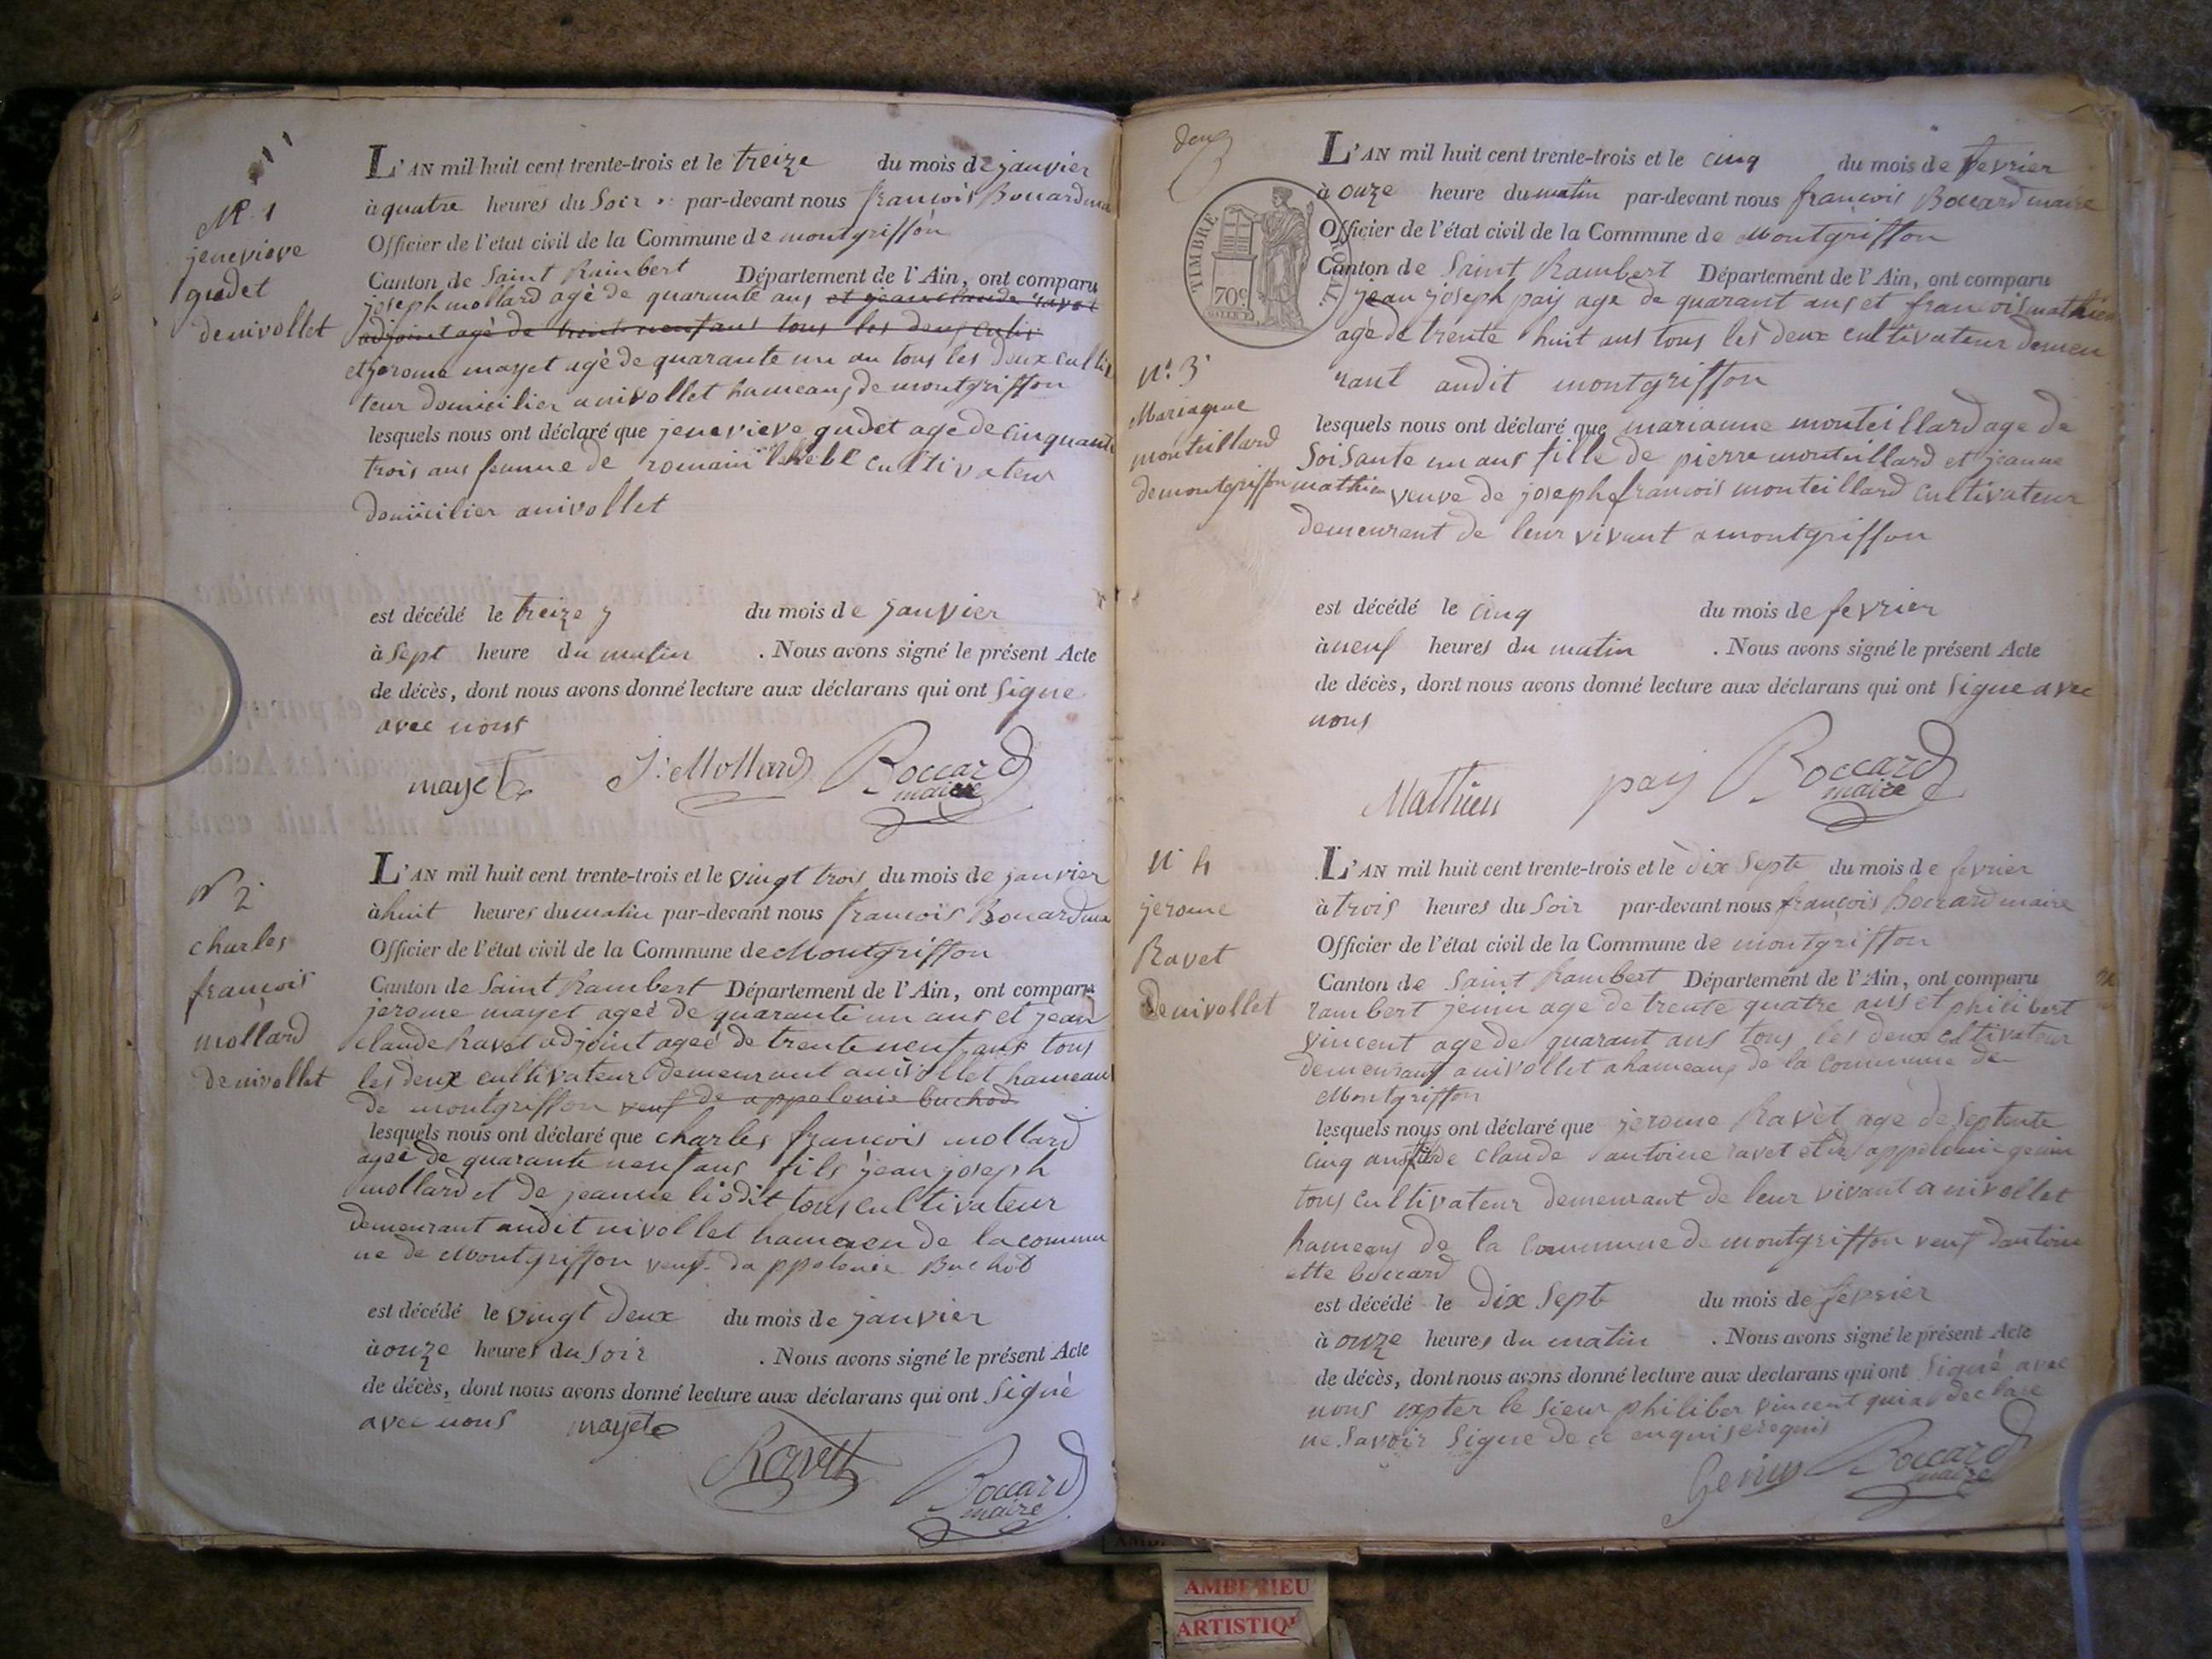 1
N° 1
jenevieve
gudet
de nivollet
L'AN mil huit cent trente-trois et le treize du mois de janvier
à quatre heures du Soir par-devant nous francois Boccard
Officier de l'état civil de la Commune de montgriffon
Canton de Saint Rambert Département de l'Ain, ont comparu
joseph mollard agé de quarante ans et jean claude ravet
adjoint agé de trente neuf ans tous les deux culti
et jerome mayet agé de quarante un an tous les deux culti
teur domicilier a nivollet hameaux de montgriffon
lesquels nous ont déclaré que jenevieve gudet age de cinquante
trois ans femme de romain cultivateur
domicilier a nivollet
est décédé le treize du mois de janvier
à Sept heure du matin . Nous avons signé le présent Acte
de décès, dont nous avons donné lecture aux déclarans qui ont Signe
avec nous
mayet J. Mollard Boccard
maire
N° 2
charles
francois
mollard
de nivollet
L'AN mil huit cent trente-trois et le vingt trois du mois de janvier
à huit heures du matin par-devant nous francois Boccard
Officier de l'état civil de la Commune de Montgriffon
Canton de Saint Rambert Département de l'Ain, ont comparu
jerome mayet ageé de quarante un ans et jean
claude Ravet adjoint ageé de trente neuf ans tous
les deux cultivateur demeurant a nivollet hameau
de montgriffon veuf de appolonie buchod
lesquels nous ont déclaré que charles francois mollard
ageé de quarante neuf ans fils jean joseph
mollard et de jeanne liodit tous cultivateur
demeurant audit nivollet hameau de la commu
ne de Montgriffon veuf dappolonie Buchod
est décédé le vingt deux du mois de janvier
à onze heures du Soir . Nous avons signé le présent Acte
de décès, dont nous avons donné lecture aux déclarans qui ont Signé
avec nous mayet
Ravet
Boccard
maire
deux
TIMBRE ROYAL
70c
N° 3
Marianne
monteillard
de montgriffon
L'AN mil huit cent trente-trois et le cinq du mois de fevrier
à onze heure du matin par-devant nous francois Boccard maire
Officier de l'état civil de la Commune de Montgriffon
Canton de Saint Rambert Département de l'Ain, ont comparu
jean joseph pay age de quarant ans et francois mathieu
age de trente huit ans tous les deux cultivateur demeu
rant audit montgriffon
lesquels nous ont déclaré que marianne monteillard age de
soisante un ans fille de pierre monteillard et jeanne
mathieu veuve de joseph francois monteillard cultivateur
demeurant de leur vivant a montgriffon
est décédé le cinq du mois de fevrier
à neuf heures du matin . Nous avons signé le présent Acte
de décès, dont nous avons donné lecture aux déclarans qui ont Signe avec
nous
Mathieu pay Boccard
maire
N° 4
jerome
Ravet
de nivollet
L'AN mil huit cent trente-trois et le dix Septe du mois de fevrier
à trois heures du Soir par-devant nous francois Boccard maire
Officier de l'état civil de la Commune de montgriffon
Canton de Saint Rambert Département de l'Ain, ont comparu
rambert jenin age de trente quatre ans et philibert
vincent age de quarant ans tous les deux cultivateur
demeurant a nivollet a hameaux de la Commune de
Montgriffon
lesquels nous ont déclaré que jerome Ravet age de Septente
cinq ans fils de claude antoine ravet et appolonie genin
tous cultivateur demeurant de leur vivant a nivollet
hameaux de la Commune de montgriffon veuf dantoin
ette boccard
est décédé le dix Sept du mois de fevrier
à onze heures du matin . Nous avons signé le présent Acte
de décès, dont nous avons donné lecture aux declarans qui ont Signé avec
nous expter le Sieur philiber vincent qui a declare
ne Savoir Signe de ce enquis requis
Genin Boccard
maire
AMBERIEU
ARTISTIQU